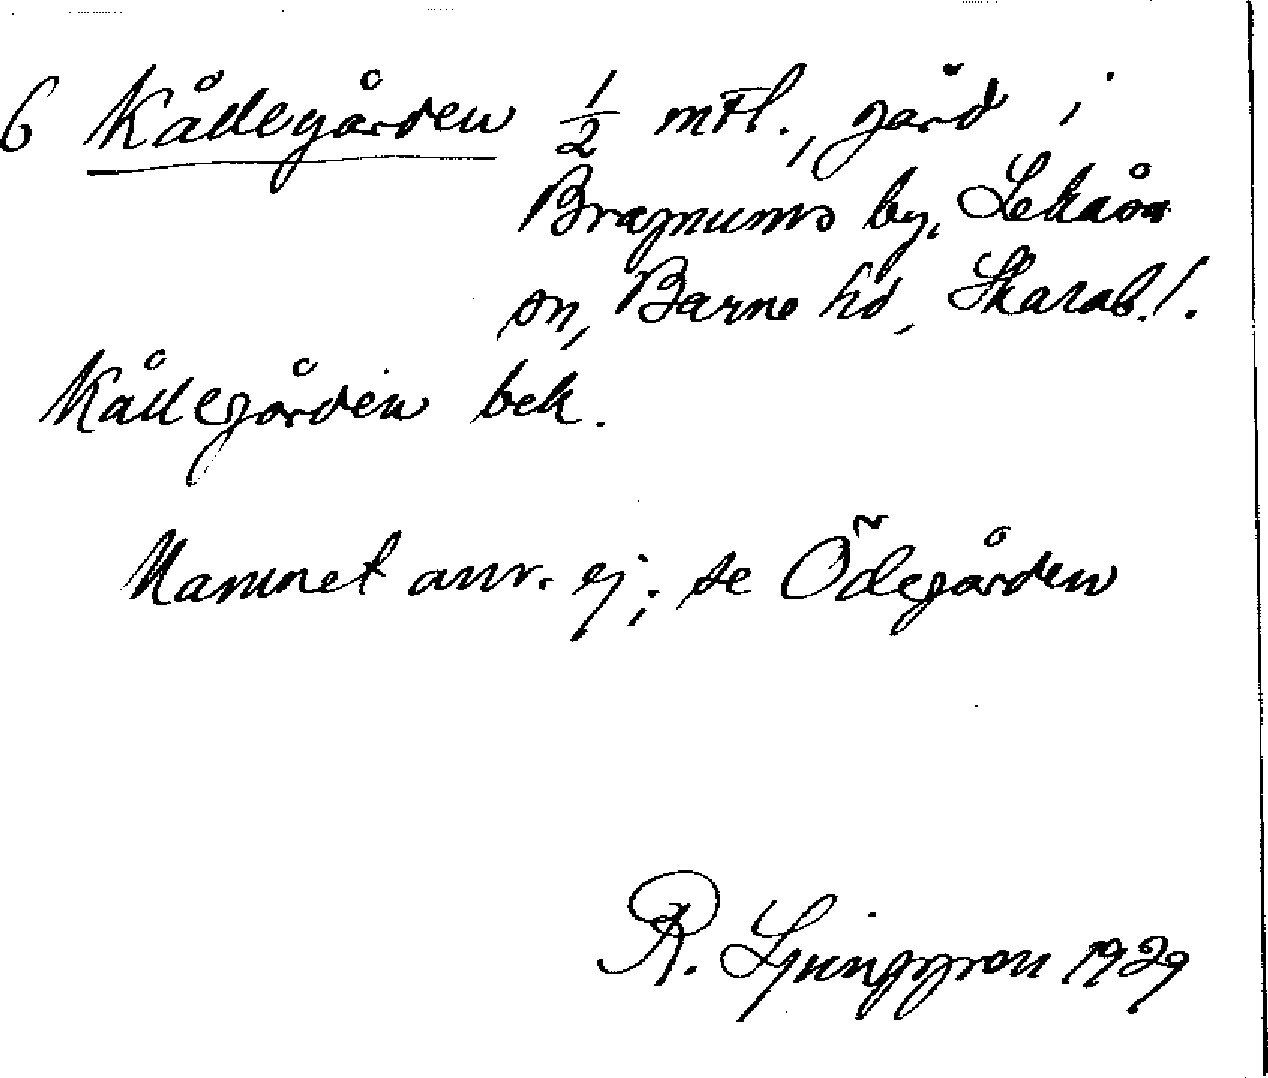 6 Kållegården 1/2 mtl., gård i
Bragnums by, Lekåsa
sn, Barne hd, Skarab. l.
Kållegården bek.
Namnet anv. ej; se Ödegården
R. Ljunggren 1929